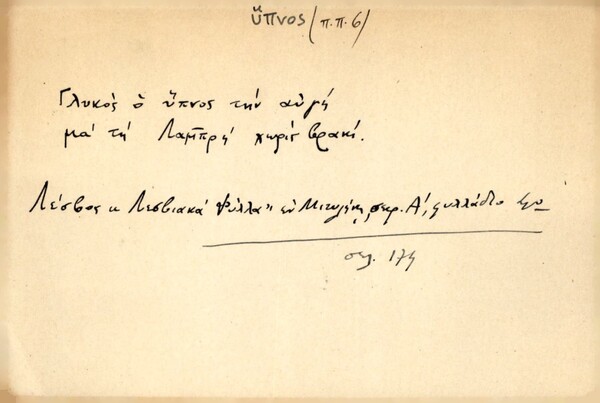 ὕπνος (π.π. 6)
Γλυκὸς ὁ ὕπνος τὴν αὐγή
μὰ τὴ Λαμπρὴ χωρὶς βρακί.
Λέσβος κ Λεσβιακὰ Φύλλα" ἐν Μιτυλήνῃ, σερ. Α', φυλλάδιο
σελ. 174